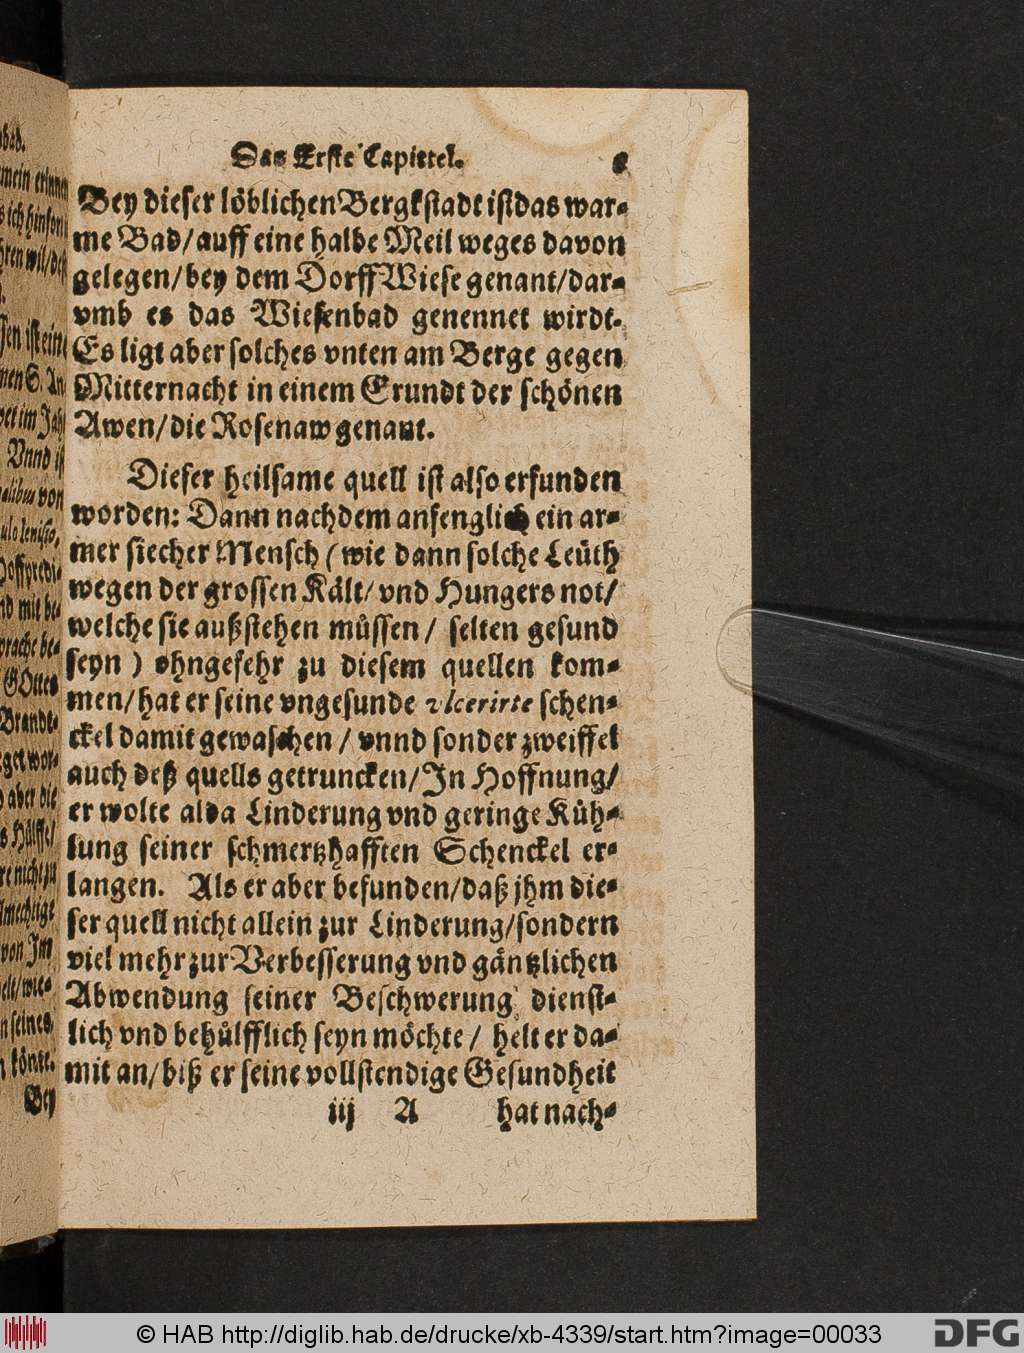 bad.
mein erinne
s ich hinfort
hren will/
sen ist ein
nen S. An
vet im Jah
Vnnd is
von
Hoffpredi-
nd mit be-
prache be-
GOttes
Brandt-
get wor-
aber die
s Hülffe/
re nicht zu
lmechtige
von Im
elt/wie-
n seines
könte.
Bey
Das Erste Capittel.
Bey dieser löblichen Bergkstadt ist das war-
me Bad/auff eine halbe Meil weges davon
gelegen/bey dem Dorff Wiese genant/dar-
vmb es das Wiesenbad genennet wirdt.
Es ligt aber solches vnten am Berge gegen
Mitternacht in einem Grundt der schönen
Awen/die Rosenaw genant.
Dieser heilsame quell ist also erfunden
worden: Dann nachdem anfenglich ein ar-
mer siecher Mensch (wie dann solche Leüth
wegen der grossen Kält/ vnd Hungers not/
welche sie außstehen müssen/ selten gesund
seyn) ohngefehr zu diesem quellen kom-
men/hat er seine vngesunde vlcerirte schen-
ckel damit gewaschen/ vnnd sonder zweiffel
auch deß quells getruncken/In Hoffnung/
er wolte alda Linderung vnd geringe Küh-
lung seiner schmertzhafften Schenckel er-
langen. Als er aber befunden/daß jhm die-
ser quell nicht allein zur Linderung/sondern
viel mehr zur Verbesserung vnd gäntzlichen
Abwendung seiner Beschwerung dienst-
lich vnd behülfflich seyn möchte/ helt er da-
mit an/biß er seine vollstendige Gesundheit
iij A hat nach-
© HAB http://diglib.hab.de/drucke/xb-4339/start.htm?image=00033
DFG